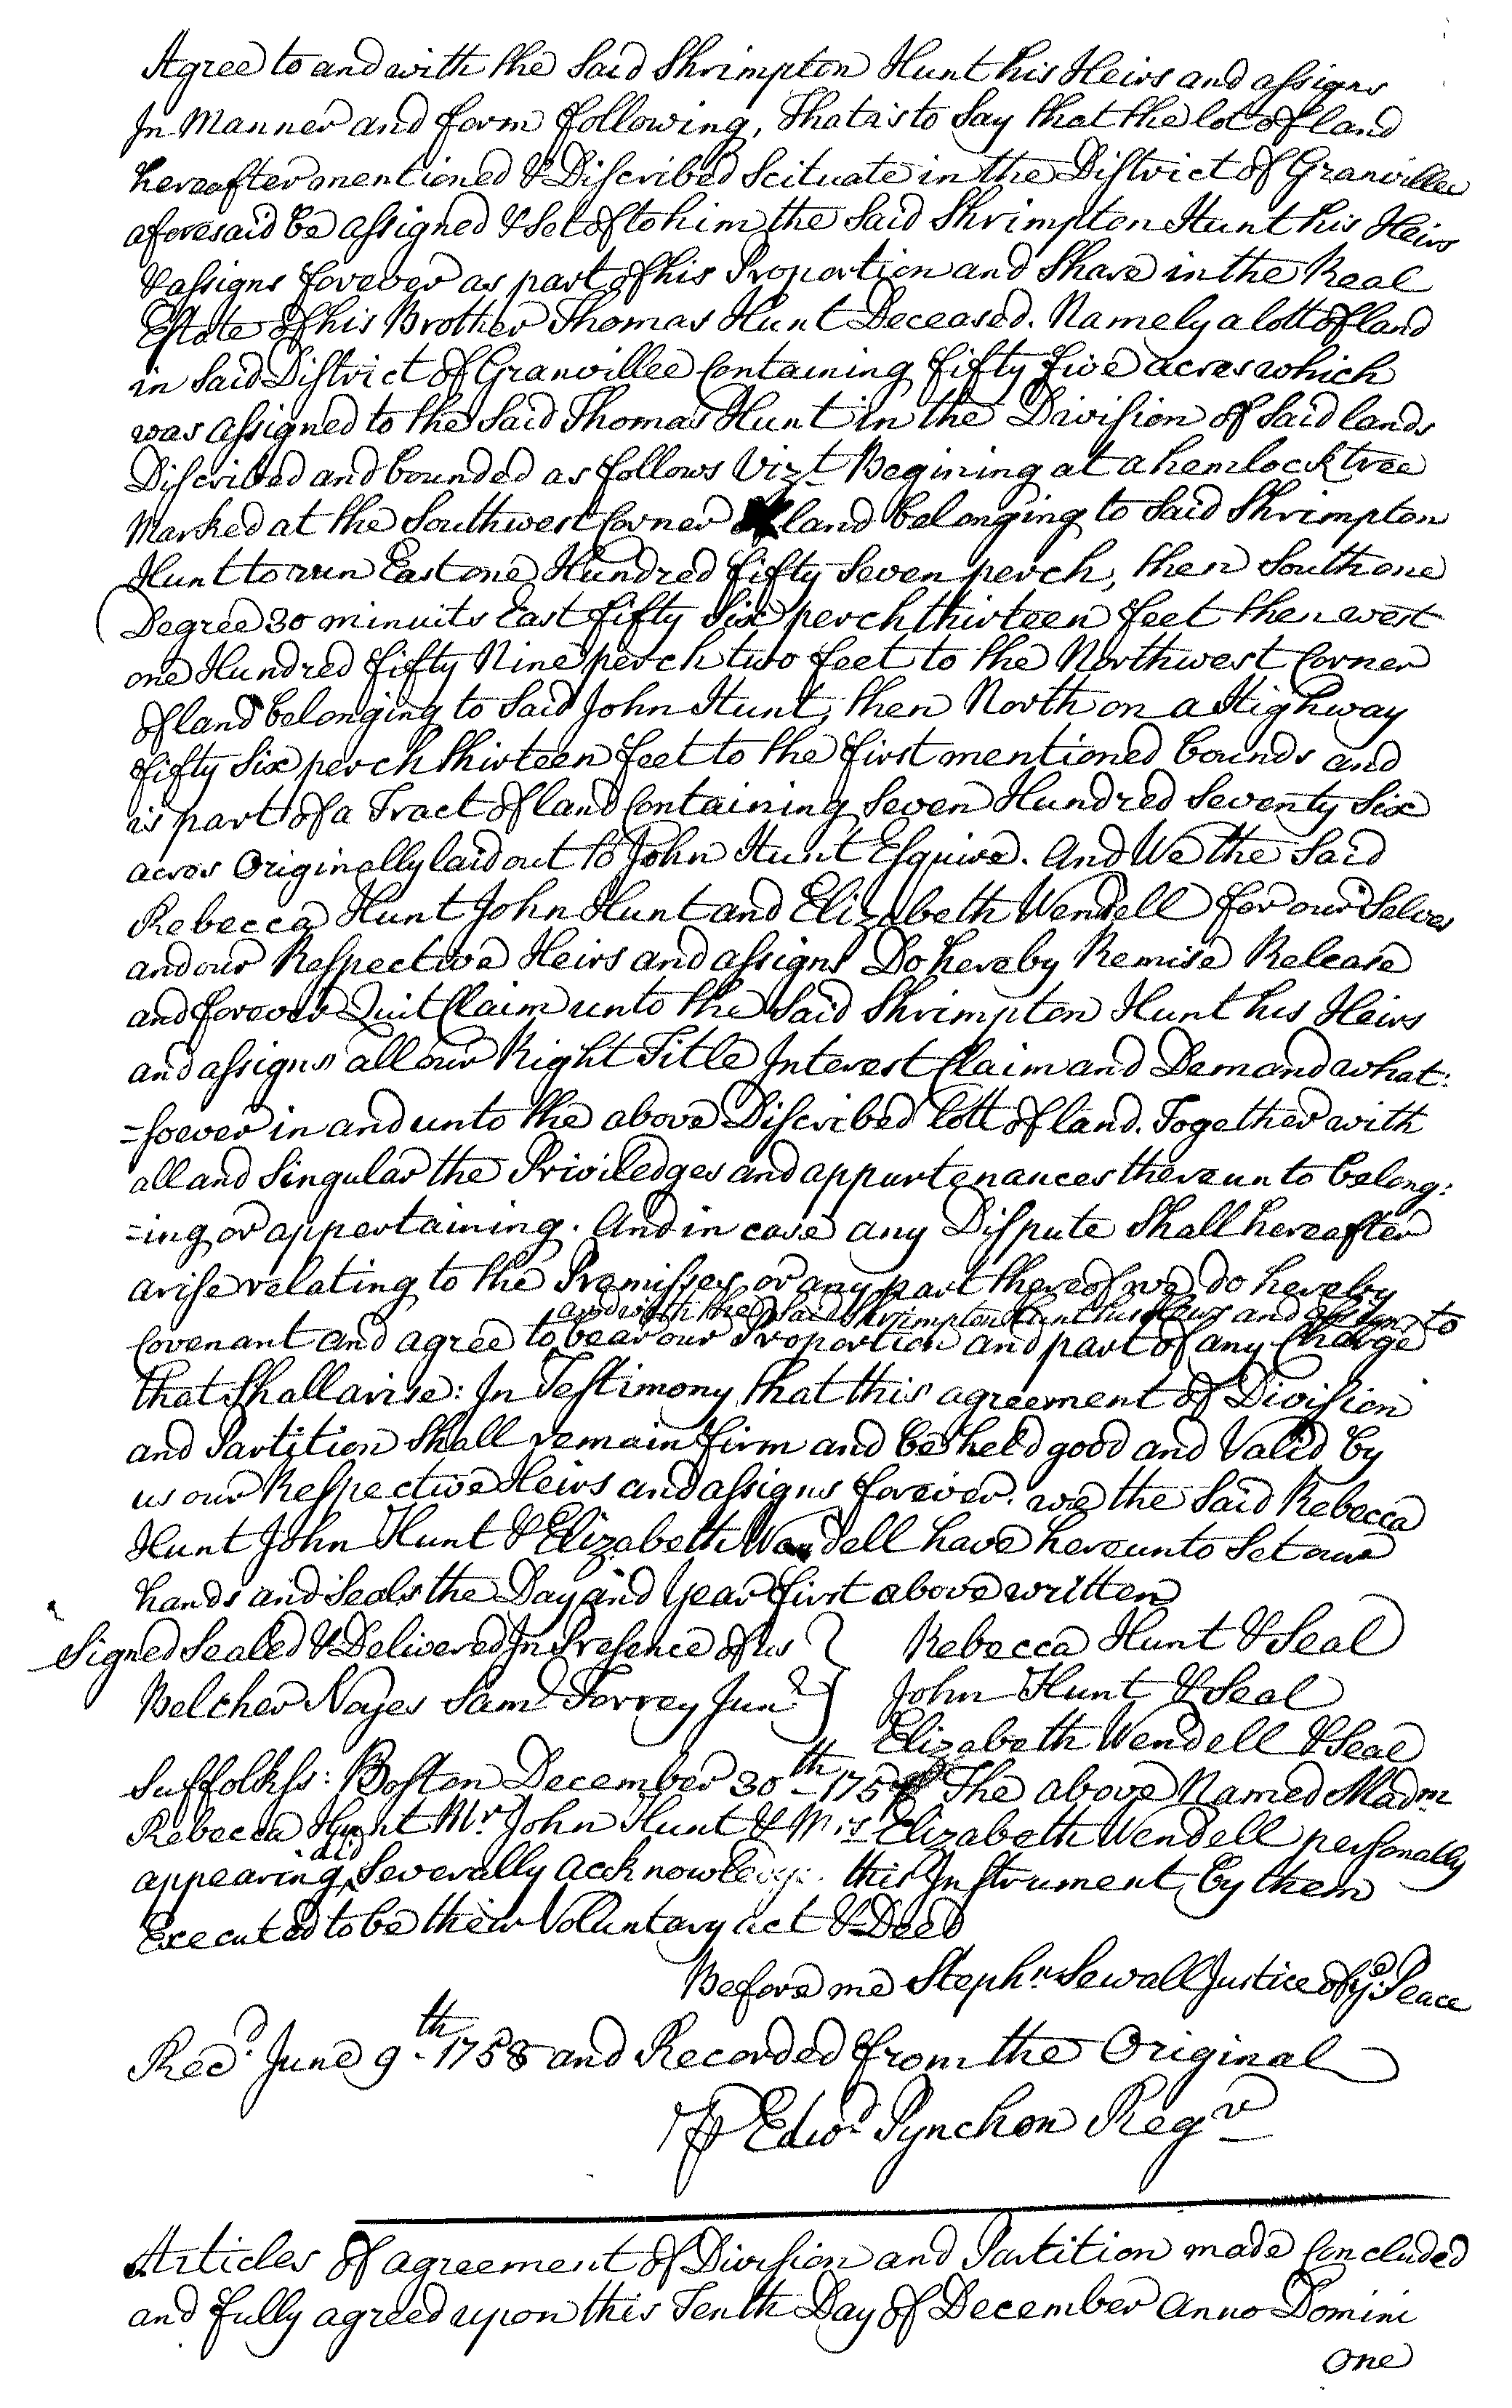 Agree to and with the Said Shrimpton Hunt his Heirs and assigns
In Manner and form following, That is to Say that the lot of land
hereafter mentioned & Discribed Scituate in the District of Granvillee
aforesaid be assigned & Set of to him the Said Shrimpton Hunt his Heirs
& assigns forever as part of his Proportion and Share in the Real
Estate of his Brother Thomas Hunt Deceased. Namely a lott of land
in Said District of Granvillee Containing fifty five acres which
was assigned to the Said Thomas Hunt in the Division of Said lands
Discribed and bounded as follows Vizt Begining at a hemlock tree
Marked at the Southwest Corner of land belonging to Said Shrimpton
Hunt to run East one Hundred fifty Seven perch, then South one
Degree 30 minuits East fifty Six perch thirteen feet then west
one Hundred fifty Nine perch two feet to the Northwest Corner
of land belonging to Said John Hunt, then North on a Highway
fifty Six perch thirteen feet to the first mentioned bounds and
is part of a Tract of land Containing Seven Hundred Seventy Six
acres Originally laid out to John Hunt Esquire. And We the Said
Rebecca Hunt John Hunt and Elizabeth Wendell for our Selves
and our Respective Heirs and assigns Do hereby Remise Release
and forever Quit Claim unto the Said Shrimpton Hunt his Heirs
and assigns all our Right Title Interest Claim and Demand what:
=soever in and unto the above Discribed lott of land. Together with
all and Singular the Priviledges and appurtenances thereunto belong:
=ing or appertaining. And in case any Dispute Shall hereafter
arise relating to the Premisses or any part thereof we do hereby
and with the Said Shrimpton Hunt his Heirs and assigns to
Covenant and agree to bear our Proportion and part of any Charge
that Shall arise: In Testimony that this agreement of Division
and Partition Shall remain firm and be held good and Valid by
us our Respective Heirs and assigns forever. we the Said Rebecca
Hunt John Hunt & Elizabeth Wendell have hereunto Set our
hands and Seals the Day and Year first above written
Signed Sealed & Delivered In Presence of us } Rebecca Hunt & Seal
Belcher Noyes Saml Torrey Junr } John Hunt & Seal
Elizabeth Wendell & Seal
Suffolk ss: Boston December 30th 175 The above Named Madm
Rebecca Hunt Mr John Hunt & Mrs Elizabeth Wendell personally
did
appearing Severally acknowledge this Instrument by them
Executed to be their Voluntary act & Deed
Before me Stephn Sewall Justice of ye Peace
Recd June 9th 1758 and Recorded from the Original
Edwd Pynchon Regr
Articles of agreement of Division and Partition made Concluded
and fully agreed upon this Tenth Day of December Anno Domini
One